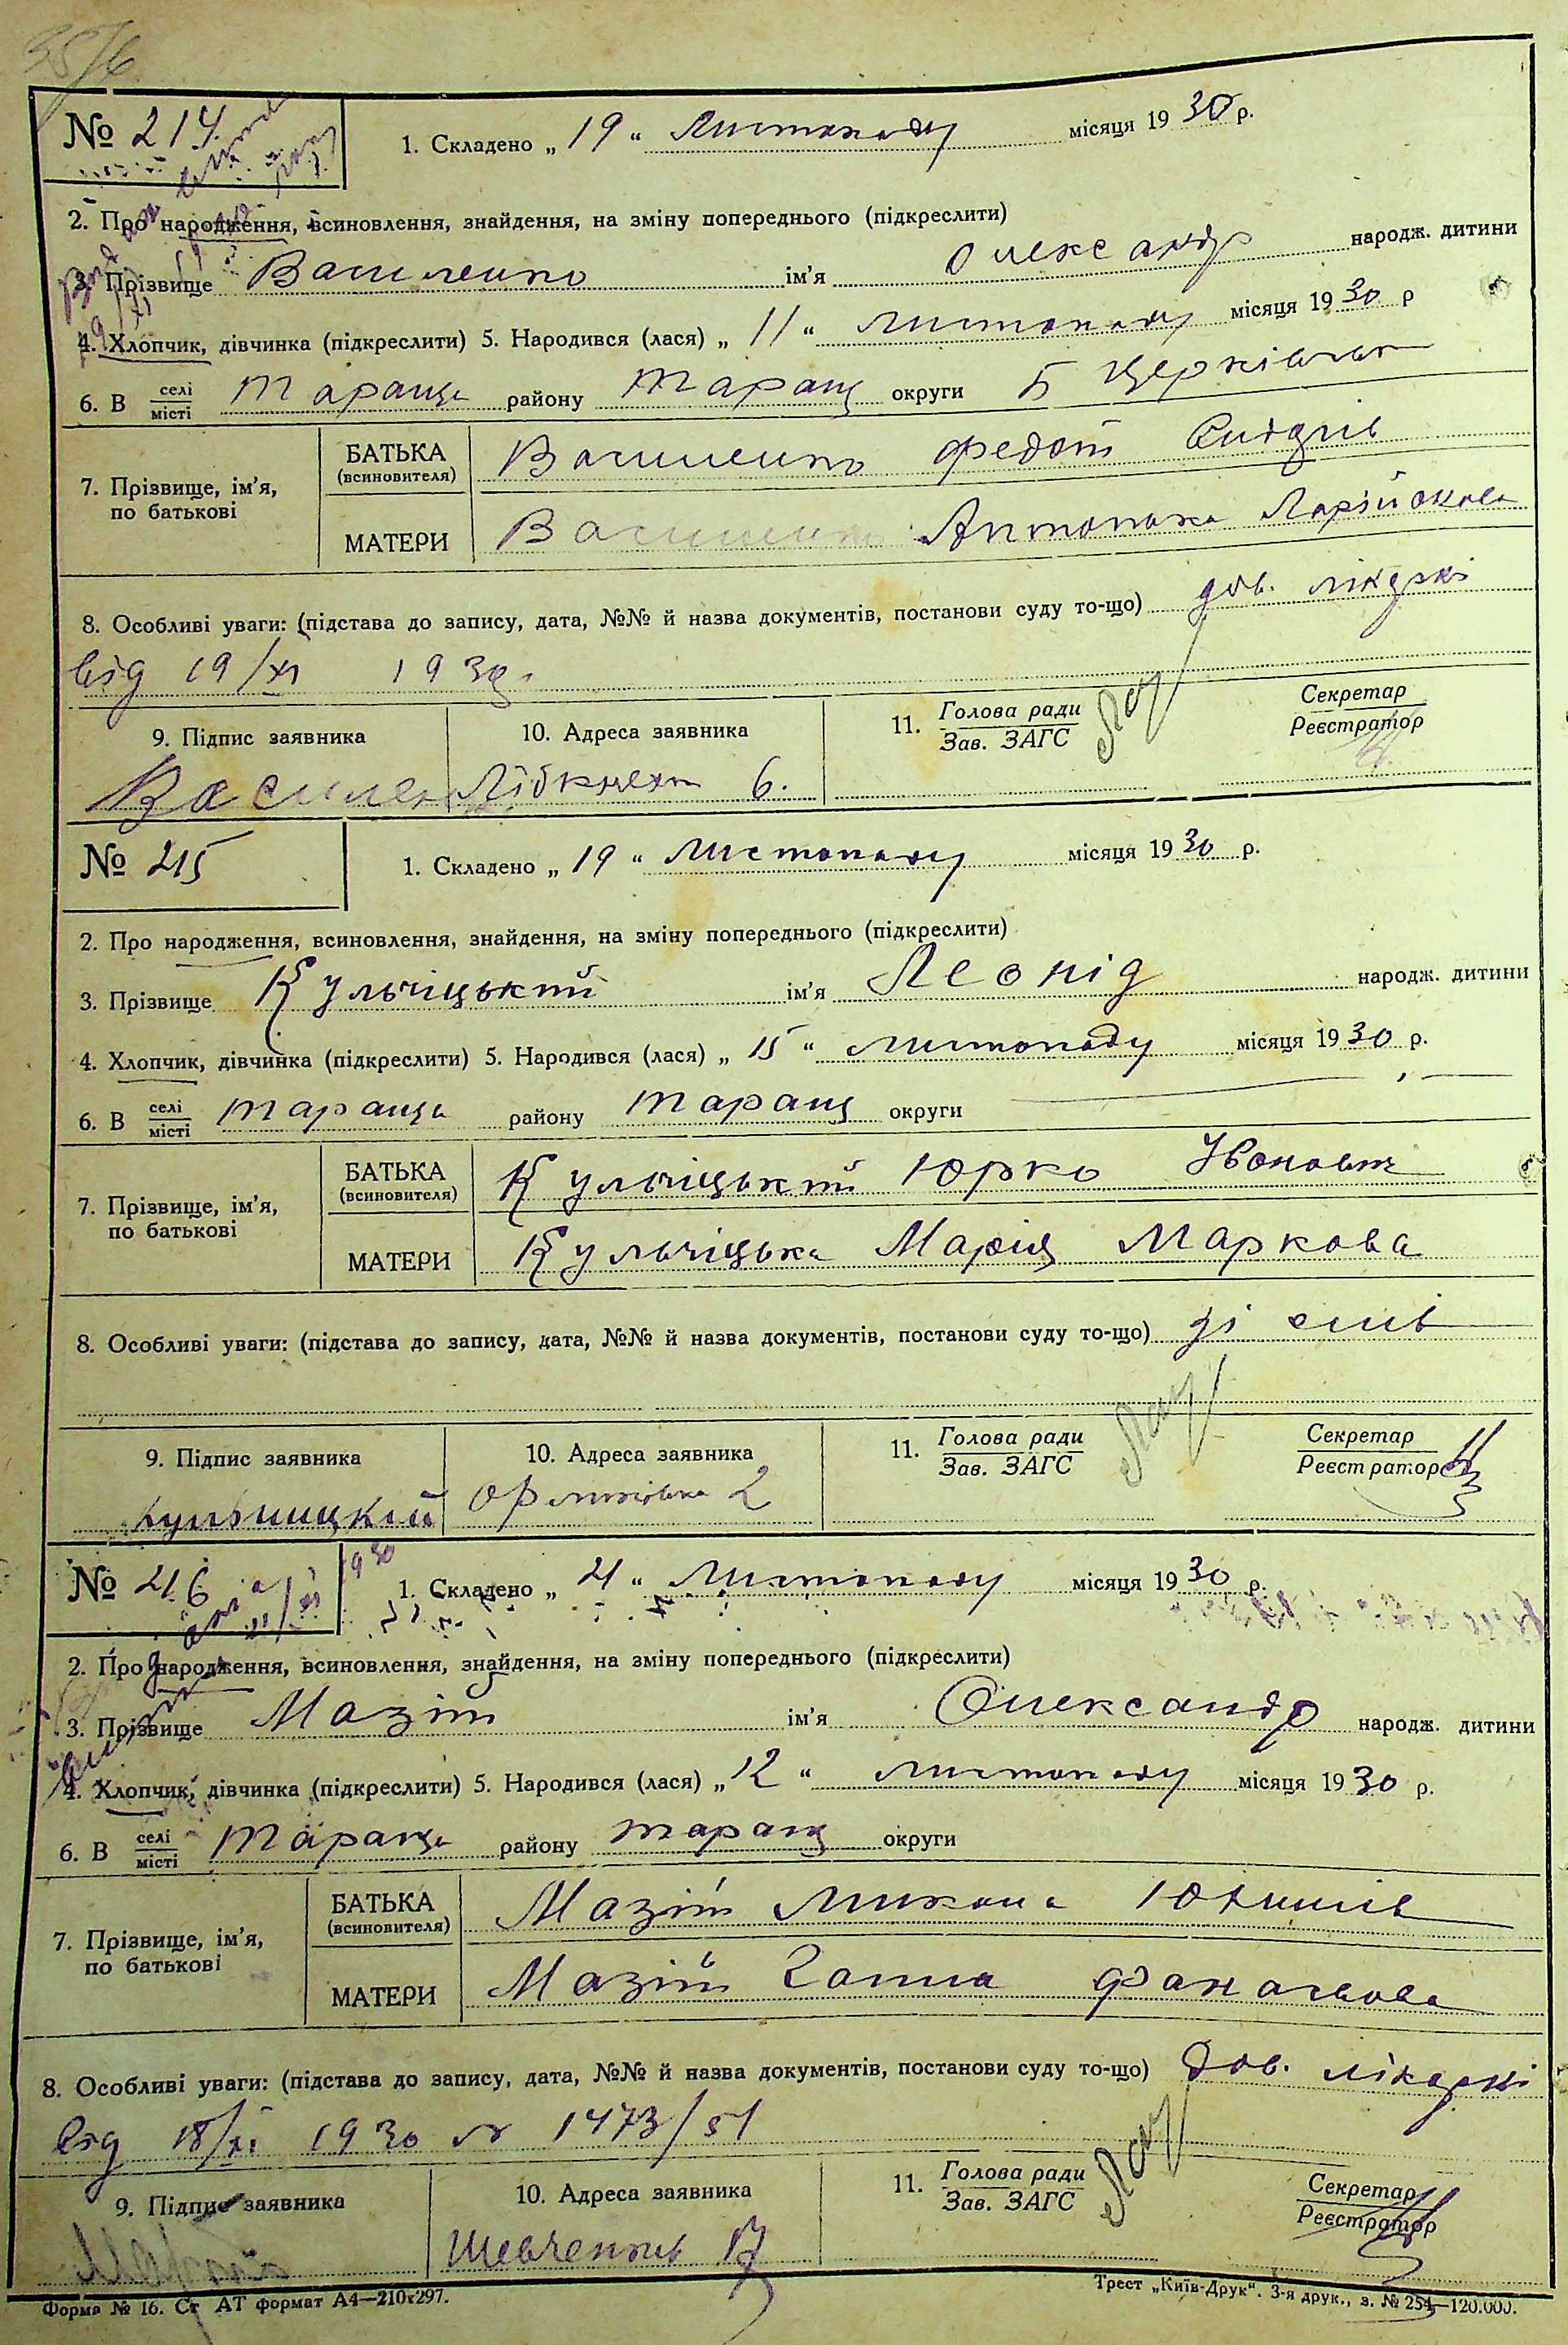 № 214
1. Складено „ 19 “ Листопаду місяця 19 30 р.
2. Про народження, всиновлення, знайдення, на зміну попереднього (підкреслити)
3. Прізвище Василенко ім'я Олександр народж. дитини
4. Хлопчик, дівчинка (підкреслити) 5. Народився (лася) „ 11 “ листопаду місяця 19 30 р
6. В селі місті Тараща району Таращ округи Б Церківськ
7. Прізвище, ім'я, по батькові
БАТЬКА (всиновителя) Василенко Федот
МАТЕРИ Василенко Антоніна
8. Особливі уваги: (підстава до запису, дата, №№ й назва документів, постанови суду то-що) дов. лікарні
від 19/XI 1930.
9. Підпис заявника 10. Адреса заявника 11. Голова ради Зав. ЗАГС Секретар Реєстратор
Василен Лібкнехт 6.
№ 215
1. Складено „ 19 “ Листопаду місяця 19 30 р.
2. Про народження, всиновлення, знайдення, на зміну попереднього (підкреслити)
3. Прізвище Кульчіцький ім'я Леонід народж. дитини
4. Хлопчик, дівчинка (підкреслити) 5. Народився (лася) „ 15 “ листопаду місяця 19 30 р.
6. В селі місті Тараща району Таращ округи
7. Прізвище, ім'я, по батькові
БАТЬКА (всиновителя) Кульчіцький Юрко Іванович
МАТЕРИ Кульчіцька Марія Маркова
8. Особливі уваги: (підстава до запису, дата, №№ й назва документів, постанови суду то-що) зі слів
9. Підпис заявника 10. Адреса заявника 11. Голова ради Зав. ЗАГС Секретар Реєстратор
Кульчицкий 2
№ 216
1. Складено „ 21 “ Листопаду місяця 19 30 р.
2. Про народження, всиновлення, знайдення, на зміну попереднього (підкреслити)
3. Прізвище Мазій ім'я Олександр народж. дитини
4. Хлопчик, дівчинка (підкреслити) 5. Народився (лася) „ 12 “ листопаду місяця 19 30 р.
6. В селі місті Тараща району Таращ округи
7. Прізвище, ім'я, по батькові
БАТЬКА (всиновителя) Мазій Микола
МАТЕРИ Мазій Ганна Фанасьова
8. Особливі уваги: (підстава до запису, дата, №№ й назва документів, постанови суду то-що) Дов. лікарні
від 18/XI 1930 № 1473/51
9. Підпис заявника 10. Адреса заявника 11. Голова ради Зав. ЗАГС Секретар Реєстратор
Шевченків 17
Форма № 16. Ст АТ формат А4—210х297. Трест „Київ-Друк“. 3-я друк., з. № 254—120.000.